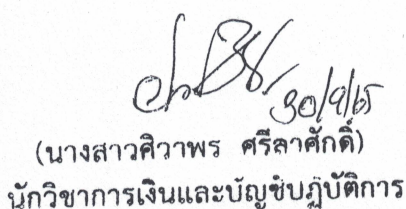 30/9/65
(นางสาวศิวาพร ศรีลาศักดิ์)
นักวิชาการเงินและบัญชีปฏิบัติการ